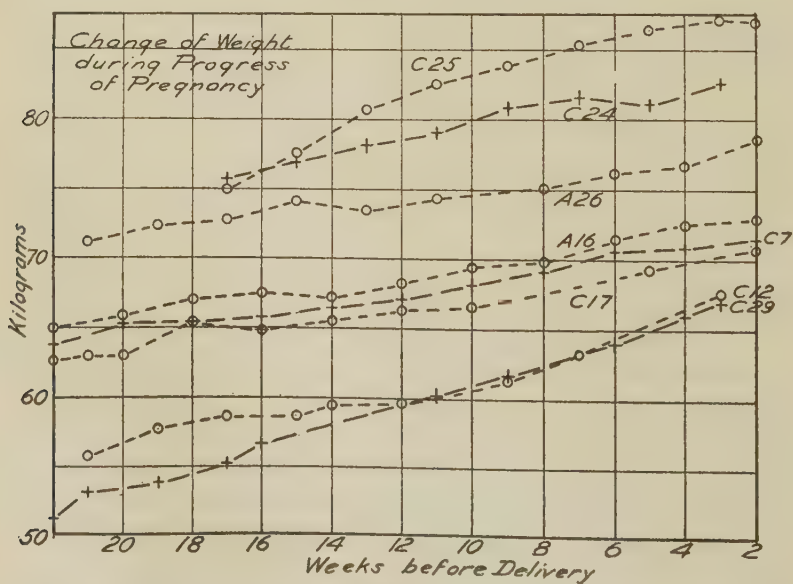 Change of Weight
during Progress
of Pregnancy
C25
C24
A26
A16
C7
C17
C12
C29
Kilograms
80
70
60
50
20 18 16 14 12 10 8 6 4 2
Weeks before Delivery